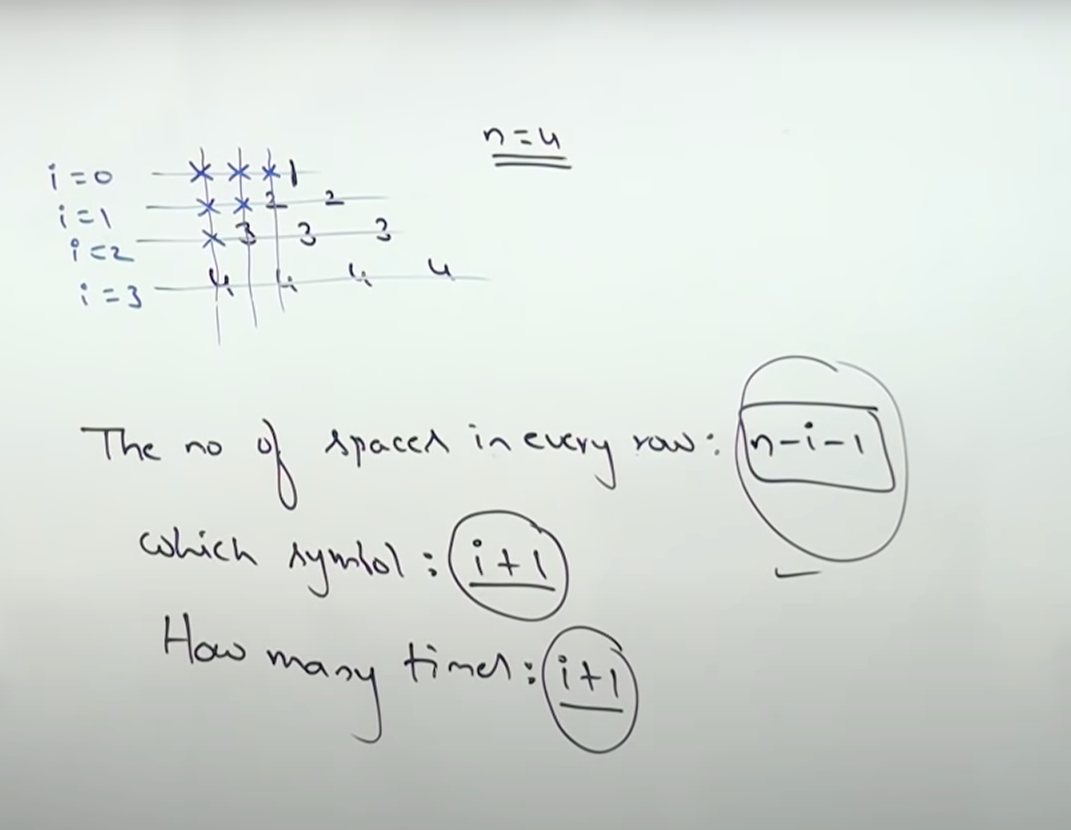 n=4
i=0 * * * 1
i=1 * * 2 2
i=2 * 3 3 3
i=3 4 4 4 4
The no of spaces in every row: n-i-1
which symbol: i+1
How many times: i+1